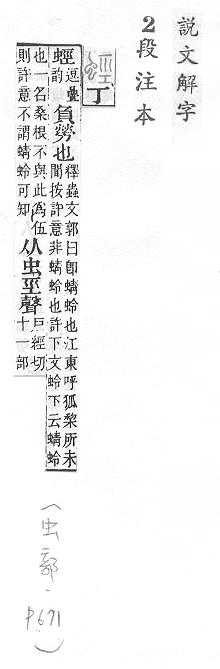 說文解字
2段注本
丁
蛵逗疊韵負勞也釋蟲文郭曰卽蜻蛉也江東呼狐棃所未聞按許意非蜻蛉也許下文蛉下云蜻蛉
也一名桑根不與此爲伍則許意不謂蜻蛉可知从虫巠聲戶經切十一部
(虫部.P.671)